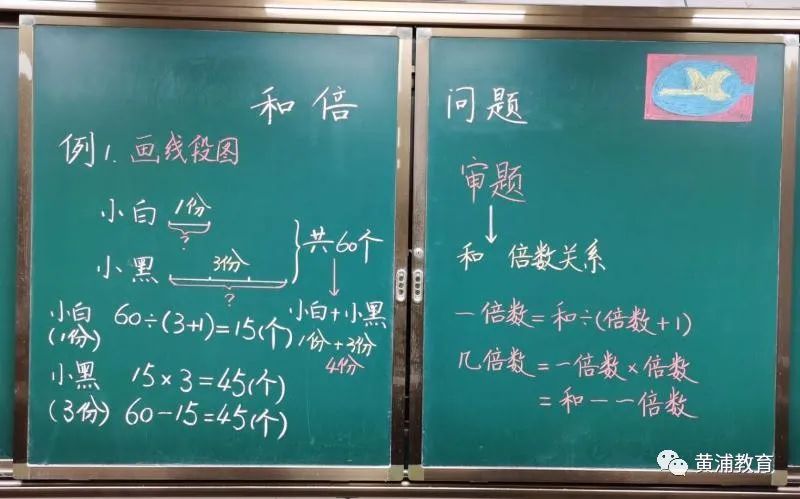 和倍 问题
例1.画线段图
小白 1份
?
小黑 3份
?
共60个
小白+小黑
1份+3份
4份
小白 60÷(3+1)=15(个)
(1份)
小黑 15×3=45(个)
(3份) 60-15=45(个)
审题
和 倍数关系
一倍数=和÷(倍数+1)
几倍数=一倍数×倍数
=和-一倍数
黄浦教育